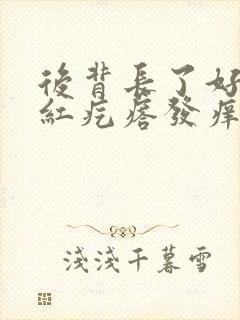 後背長了好
紅疙瘩發痒
淺淺千暮雪